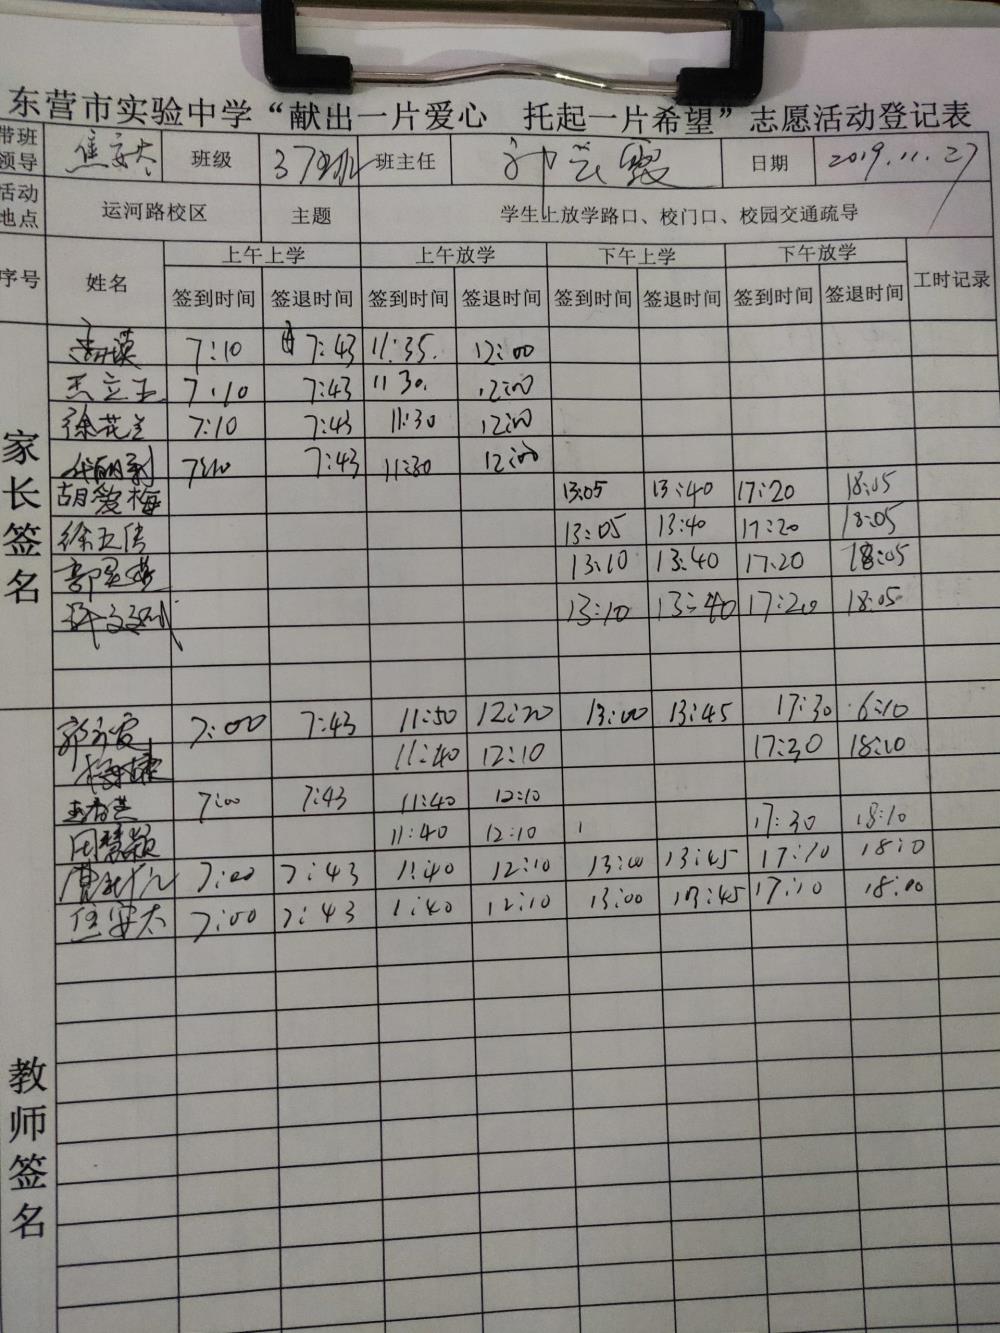 东营市实验中学“献出一片爱心 托起一片希望”志愿活动登记表
带班领导 焦安太 班级 37班 班主任 日期 2019.11.27
活动地点 运河路校区 主题 学生上放学路口、校门口、校园交通疏导
序号 姓名 上午上学 上午放学 下午上学 下午放学 工时记录
签到时间 签退时间 签到时间 签退时间 签到时间 签退时间 签到时间 签退时间
家长签名
7:10 7:43 11:35. 12:00
王立玉 7:10 7:43 11 30. 12:00
徐花兰 7:10 7:43 11:30 12:00
7:10 7:43 11:30 12:00
胡爱梅 13:05 13:40 17:20 18:05
徐玉倩 13:05 13:40 17:20 18:05
13:10 13:40 17:20 18:05
13:10 13:40 17:20 18:05
教师签名
7:00 7:43 11:50 12:20 13:00 13:45 17:30 6:10
11:40 12:10 17:30 18:10
7:00 7:43 11:40 12:10
周慧颖 11:40 12:10 17:30 18:10
7:00 7:43 11:40 12:10 13:00 13:45 17:10 18:10
焦安太 7:00 7:43 11:40 12:10 13:00 13:45 17:10 18:00